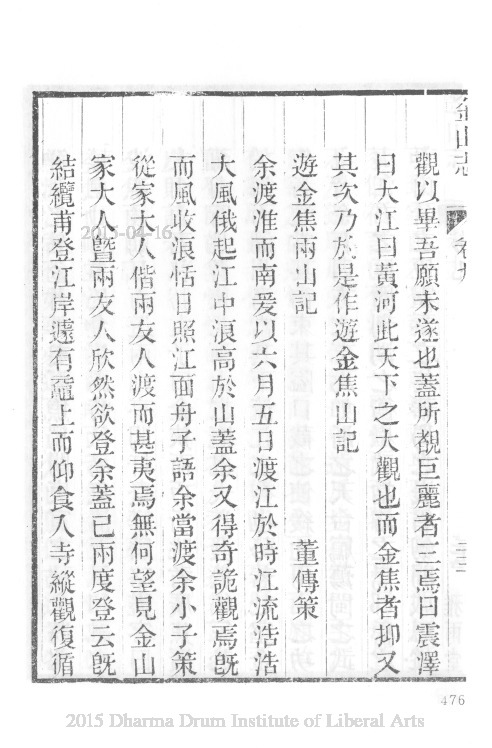 金山志 卷九 二三
觀以畢吾願未遂也蓋所覩巨麗者三焉曰震澤
曰大江曰黃河此天下之大觀也而金焦者抑又
其次乃於是作遊金焦山記
遊金焦兩山記 董傳策
余渡淮而南爰以六月五日渡江於時江流浩浩
大風俄起江中浪高於山蓋余又得奇詭觀焉旣
而風收浪恬日照江面舟子語余當渡余小子策
從家大人偕兩友人渡而甚夷焉無何望見金山
家大人曁兩友人欣然欲登余蓋已兩度登云旣
結纜甫登江岸遽有黿上而仰食入寺縱觀復循
2015-04-16
476
2015 Dharma Drum Institute of Liberal Arts